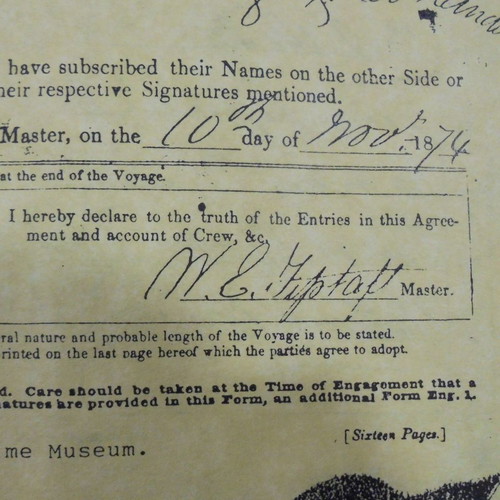 have subscribed their Names on the other Side or
heir respective Signatures mentioned.
Master, on the 10th day of Novr. 1874
at the end of the Voyage.
I hereby declare to the truth of the Entries in this Agree-
ment and account of Crew, &c.
W. E. Tiptaft Master.
ral nature and probable length of the Voyage is to be stated.
rinted on the last page hereof which the parties agree to adopt.
d. Care should be taken at the Time of Engagement that a
natures are provided in this Form, an additional Form Eng. 1.
[Sixteen Pages.]
me Museum.